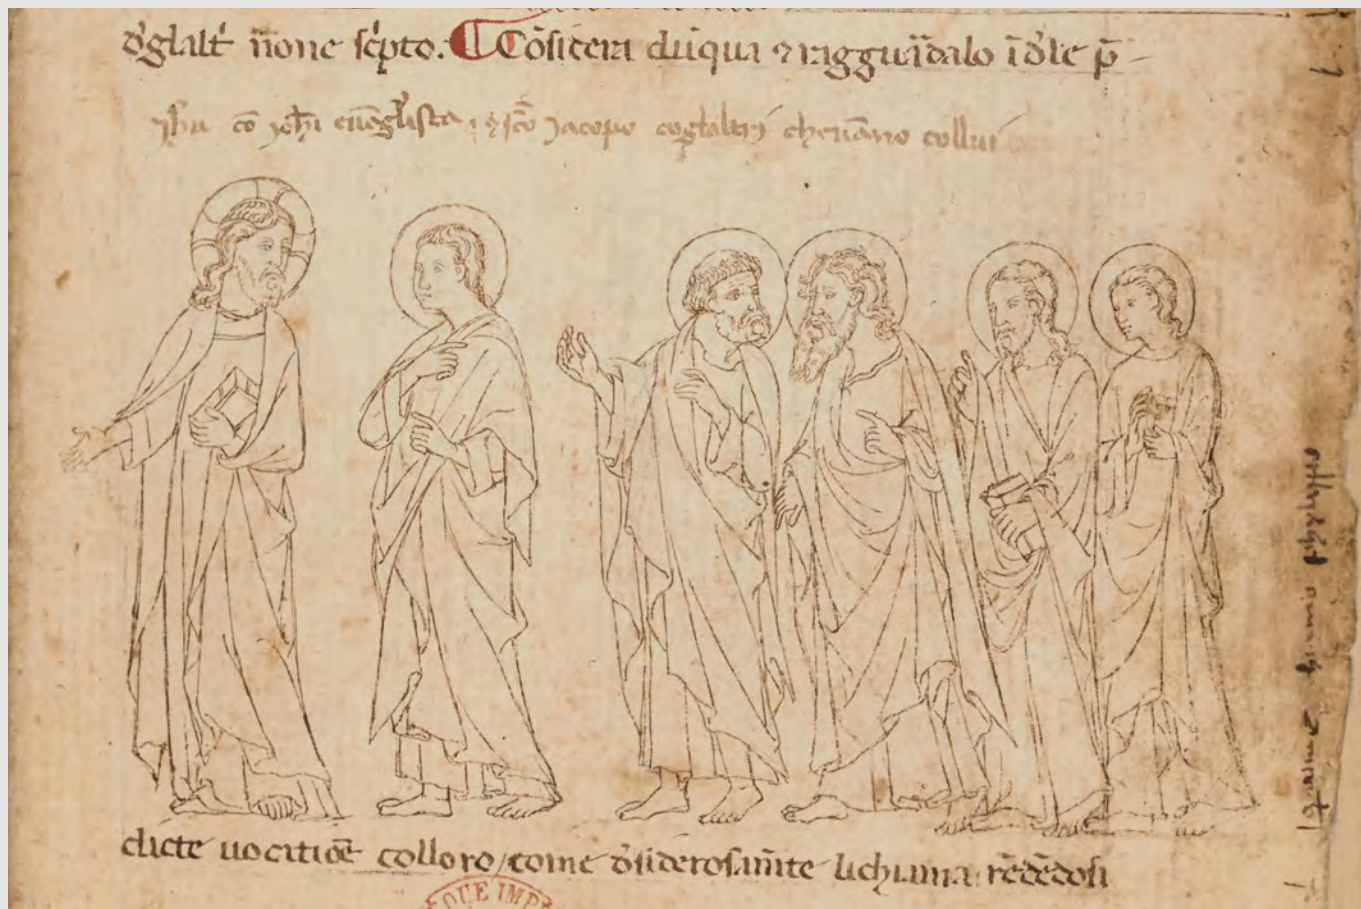 d'glalt' n̄one sc'pto. ¶ Cōsidera dūqua ⁊ raggua͞dalo ī d'le p̄-
yh̄u cō ioh̄i euāg'lista, ⁊ sc̄o Jacopo cog'laltri cheuāno collui
dicte uocatiōe colloro / come d'siderosam̄te lichiama rēdēdosi
phylyppo
QUE IMP